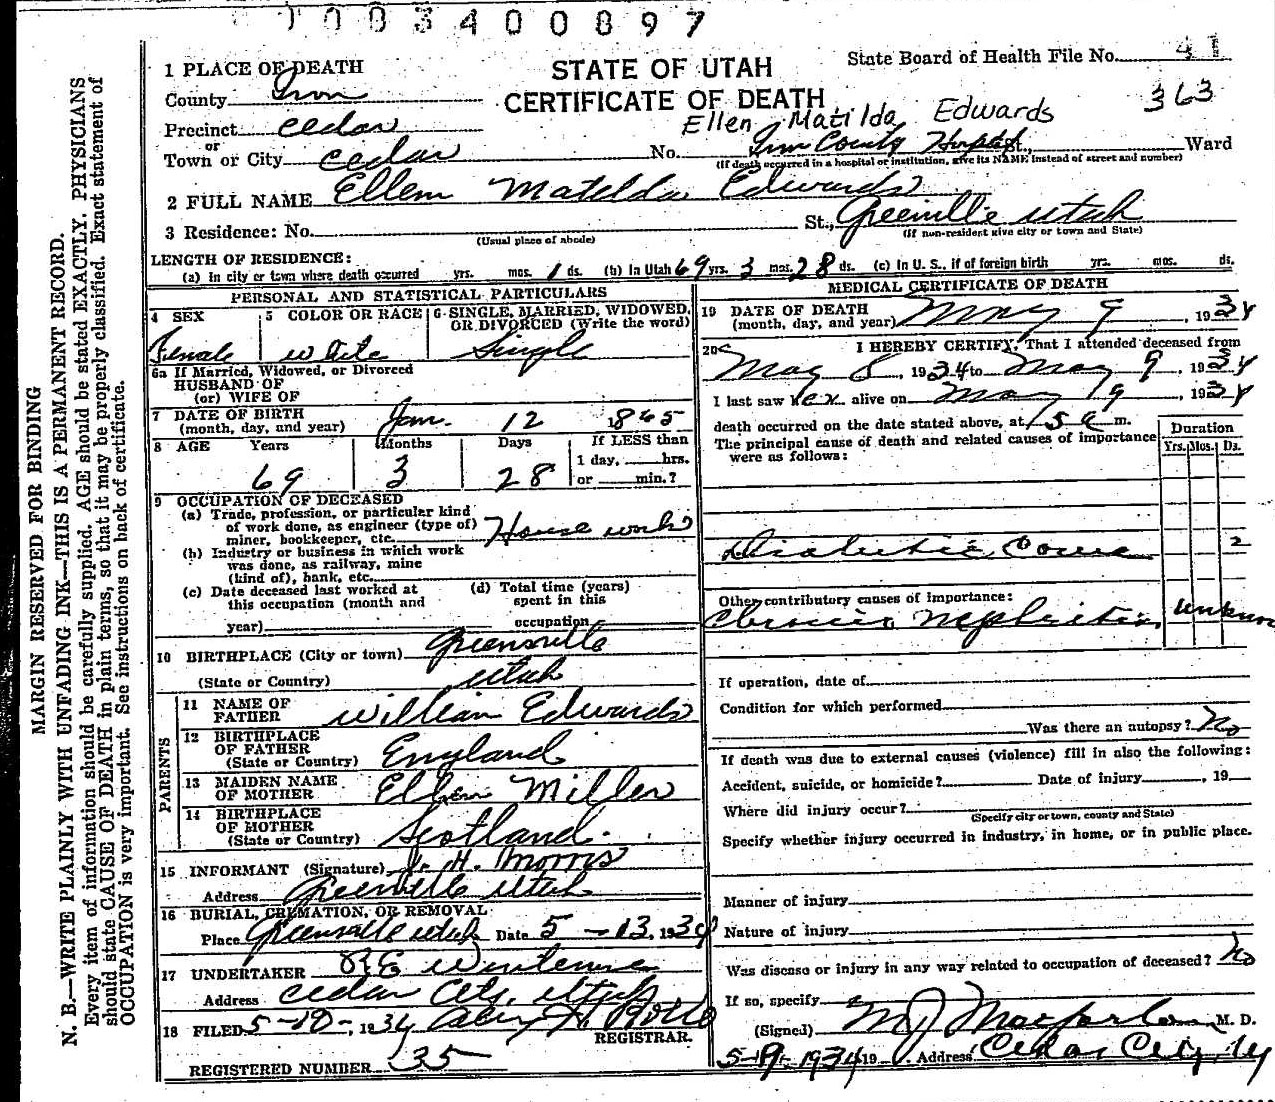 1003400897
MARGIN RESERVED FOR BINDING
N. B.—WRITE PLAINLY WITH UNFADING INK—THIS IS A PERMANENT RECORD.
Every item of information should be carefully supplied. AGE should be stated EXACTLY. PHYSICIANS
should state CAUSE OF DEATH in plain terms, so that it may be properly classified. Exact statement of
OCCUPATION is very important. See instructions on back of certificate.
State Board of Health File No. 41
363
STATE OF UTAH
CERTIFICATE OF DEATH
Ellen Matilda Edwards
1 PLACE OF DEATH
County Iron
Precinct Cedar
or
Town or City Cedar No. Iron County Hospital St., Ward
(If death occurred in a hospital or institution, give its NAME instead of street and number)
2 FULL NAME Ellen Matilda Edwards
3 Residence: No. St., Greenville Utah
(Usual place of abode) (If non-resident give city or town and State)
LENGTH OF RESIDENCE:
(a) In city or town where death occurred yrs. mos. 1 ds. (b) In Utah 69 yrs. 3 mos. 28 ds. (c) In U. S., if of foreign birth yrs. mos. ds.
PERSONAL AND STATISTICAL PARTICULARS
4 SEX Female
5 COLOR OR RACE White
6 SINGLE, MARRIED, WIDOWED, OR DIVORCED (Write the word) Single
6a If Married, Widowed, or Divorced
HUSBAND OF
(or) WIFE OF
7 DATE OF BIRTH
(month, day, and year) Jan. 12 1865
8 AGE Years Months Days If LESS than
69 3 28 1 day, hrs.
or min.?
9 OCCUPATION OF DECEASED
(a) Trade, profession, or particular kind
of work done, as engineer (type of)
miner, bookkeeper, etc. House work
(b) Industry or business in which work
was done, as railway, mine
(kind of), bank, etc.
(c) Date deceased last worked at
this occupation (month and
year)
(d) Total time (years)
spent in this
occupation
10 BIRTHPLACE (City or town) Greensville
(State or Country) Utah
PARENTS
11 NAME OF
FATHER William Edwards
12 BIRTHPLACE
OF FATHER
(State or Country) England
13 MAIDEN NAME
OF MOTHER Ellen Miller
14 BIRTHPLACE
OF MOTHER
(State or Country) Scotland.
15 INFORMANT (Signature) H. Morris
Address Greenville Utah
16 BURIAL, CREMATION, OR REMOVAL
Place Greensville Utah Date 5-13, 1934
17 UNDERTAKER
Address Cedar City, Utah
18 FILED 5-10-, 1934
REGISTRAR.
REGISTERED NUMBER 35
MEDICAL CERTIFICATE OF DEATH
19 DATE OF DEATH
(month, day, and year) May 9, 1934
20 I HEREBY CERTIFY, That I attended deceased from
May 8, 1934 to May 9, 1934
I last saw her alive on May 9, 1934
death occurred on the date stated above, at m.
The principal cause of death and related causes of importance
were as follows:
Duration
Yrs. Mos. Ds.
Diabetic Coma 2
Other contributory causes of importance:
Chronic Nephritis Unknown
If operation, date of
Condition for which performed
Was there an autopsy? No
If death was due to external causes (violence) fill in also the following:
Accident, suicide, or homicide? Date of injury , 19
Where did injury occur?
(Specify city or town, county and State)
Specify whether injury occurred in industry, in home, or in public place.
Manner of injury
Nature of injury
Was disease or injury in any way related to occupation of deceased? No
If so, specify
(Signed) M J Macfarlane, M. D.
1934 19 Address Cedar City, U